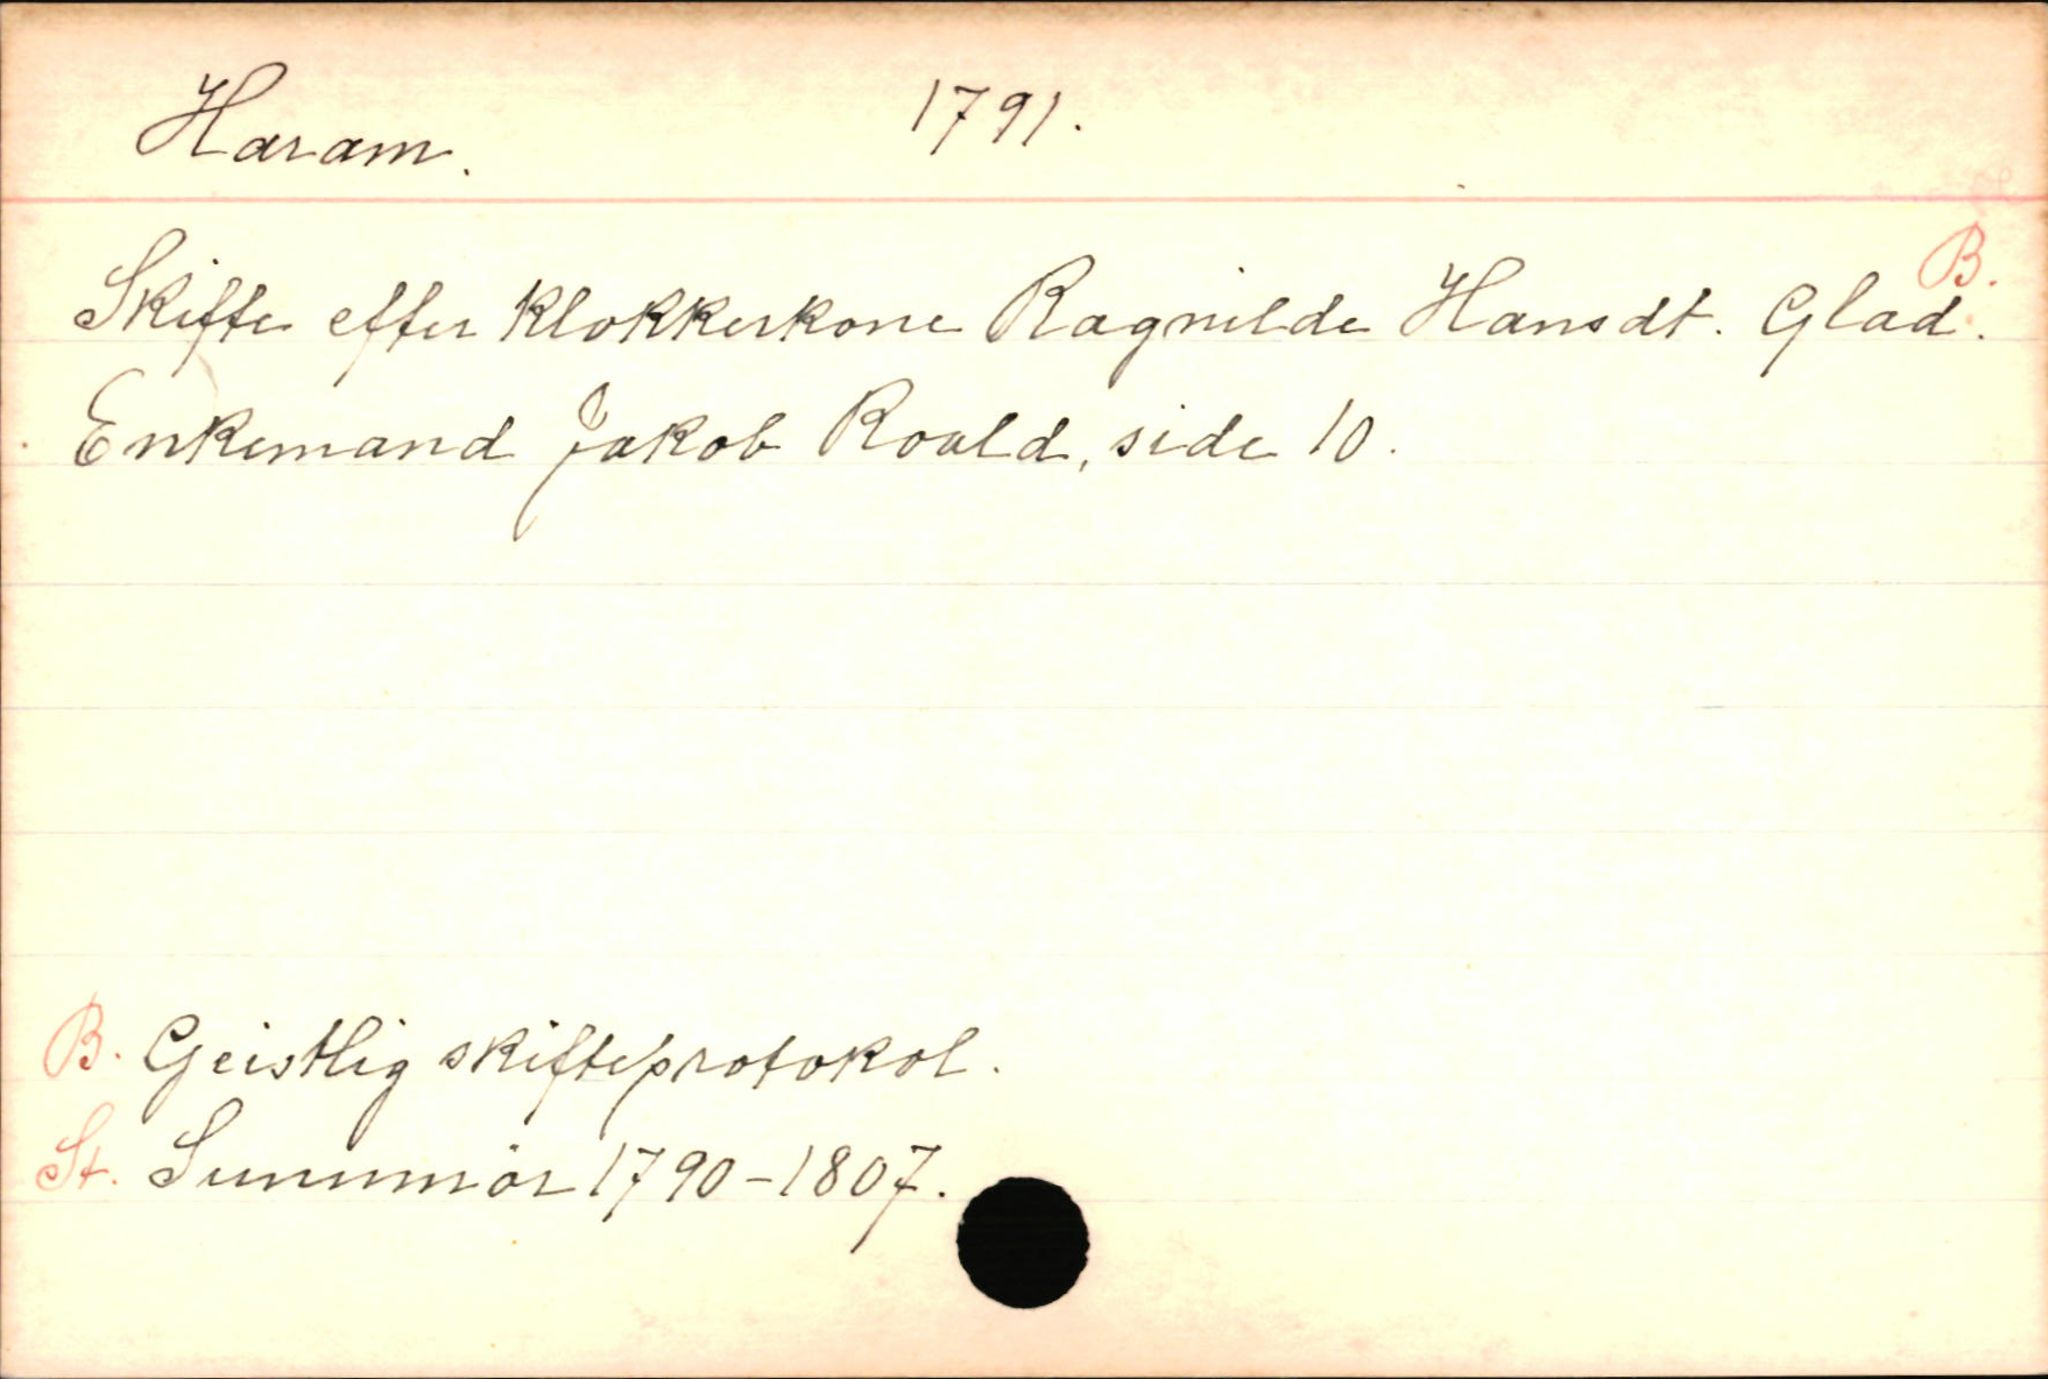 Haram. 1791.
B.
Skifte efter klokkerkone Ragnilde Hansdt. Glad.
Enkemand Jakob Roald, side 10.
B. Geistlig skifteprotokol.
St. Sunnmör 1790-1807.